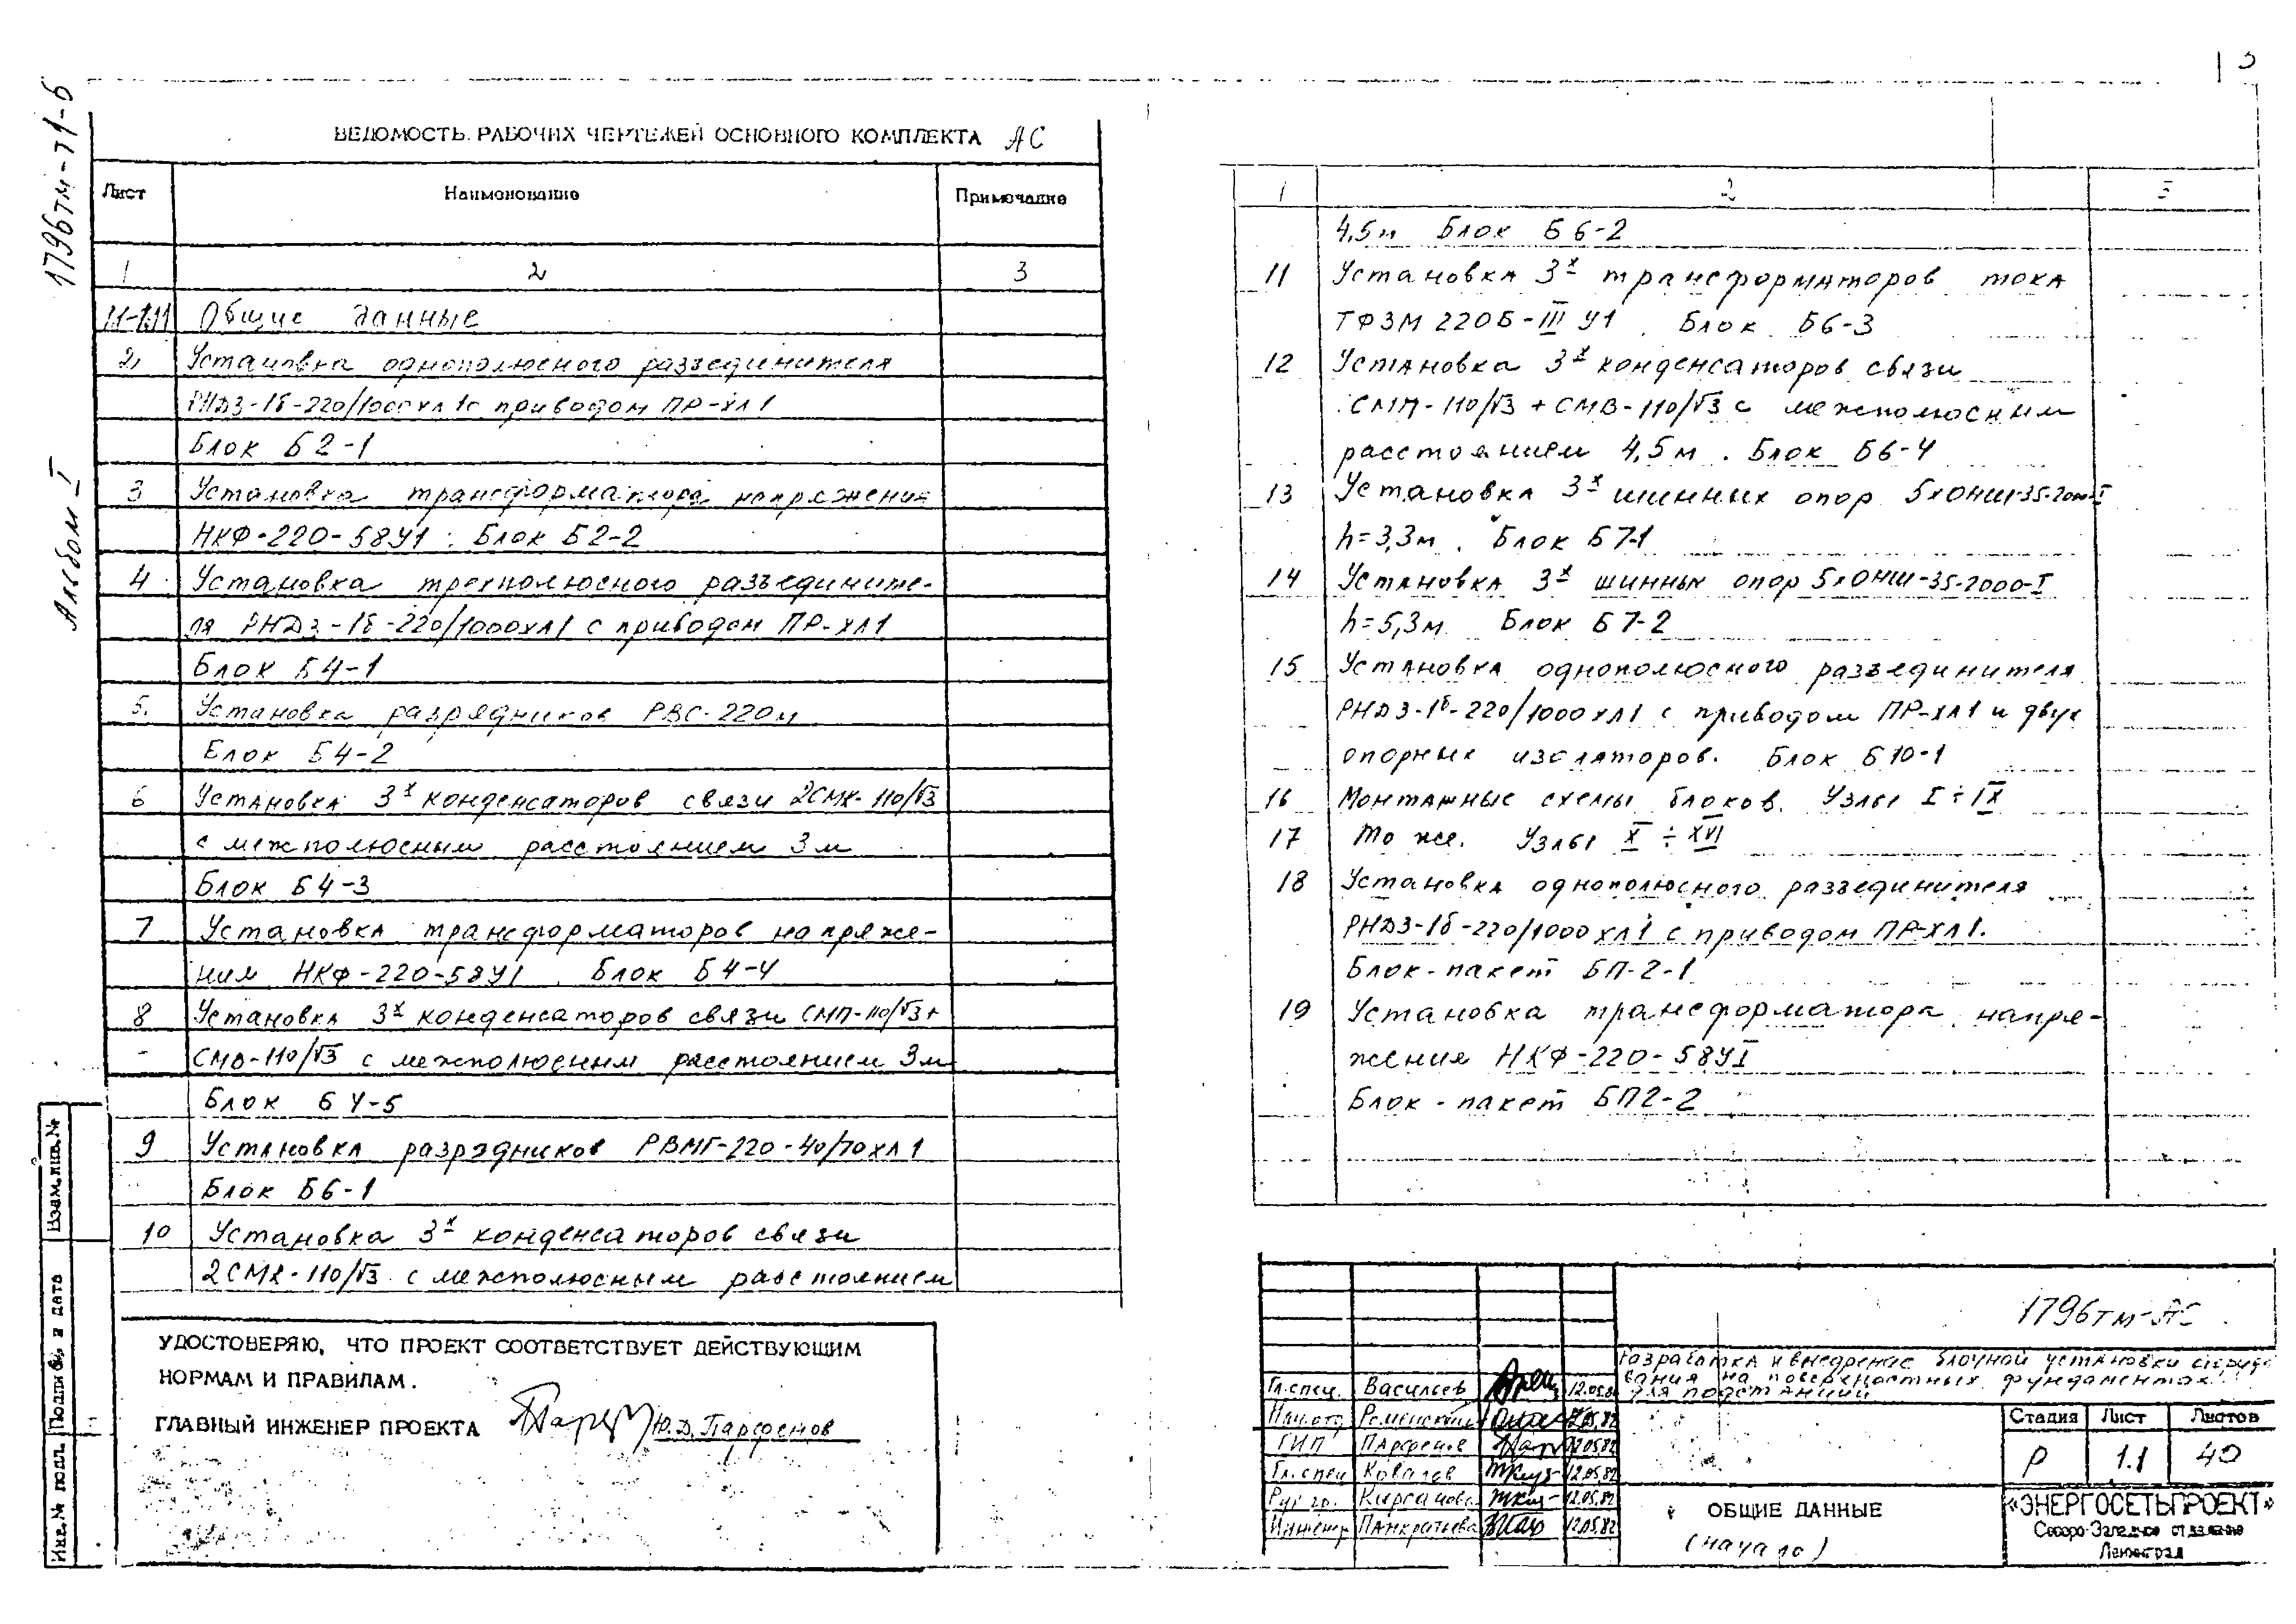 1796тм-т1-6
Альбом I
ВЕДОМОСТЬ РАБОЧИХ ЧЕРТЕЖЕЙ ОСНОВНОГО КОМПЛЕКТА АС
Лист Наименование Примечание
1 2 3
1.1-1.11 Общие данные
2 Установка однополюсного разъединителя
РНДЗ-1б-220/1000ХЛ1 с приводом ПР-ХЛ1
Блок Б2-1
3 Установка трансформатора напряжения
НКФ-220-58У1. Блок Б2-2
4 Установка трехполюсного разъедините-
ля РНДЗ-1б-220/1000ХЛ1 с приводом ПР-ХЛ1
Блок Б4-1
5. Установка разрядников РВС-220м
Блок Б4-2
6 Установка 3х конденсаторов связи 2СМК-110/√3
с межполюсным расстоянием 3м
Блок Б4-3
7 Установка трансформаторов напряже-
ния НКФ-220-58У1. Блок Б4-4
8 Установка 3х конденсаторов связи СМП-110/√3+
СМВ-110/√3 с межполюсным расстоянием 3м
Блок Б4-5
9 Установка разрядников РВМГ-220-40/70ХЛ1
Блок Б6-1
10 Установка 3х конденсаторов связи
2СМК-110/√3 с межполюсным расстоянием
УДОСТОВЕРЯЮ, ЧТО ПРОЕКТ СООТВЕТСТВУЕТ ДЕЙСТВУЮЩИМ
НОРМАМ И ПРАВИЛАМ.
ГЛАВНЫЙ ИНЖЕНЕР ПРОЕКТА Ю.Д. Парфенов
Взам.инв.№
Подпись и дата
Инв.№ подл.
1 2 3
4,5м Блок Б6-2
11 Установка 3х трансформаторов тока
ТФЗМ 220Б-III У1. Блок Б6-3
12 Установка 3х конденсаторов связи
СМП-110/√3 + СМВ-110/√3 с межполюсным
расстоянием 4,5м. Блок Б6-4
13 Установка 3х шинных опор 5хОНШ-35-2000-I
h=3,3м. Блок Б7-1
14 Установка 3х шинных опор 5хОНШ-35-2000-I
h=5,3м Блок Б7-2
15 Установка однополюсного разъединителя
РНДЗ-1б-220/1000ХЛ1 с приводом ПР-ХЛ1 и двух
опорных изоляторов. Блок Б10-1
16 Монтажные схемы блоков. Узлы I÷IX
17 То же. Узлы X÷XVI
18 Установка однополюсного разъединителя
РНДЗ-1б-220/1000ХЛ1 с приводом ПР-ХЛ1.
Блок-пакет БП-2-1
19 Установка трансформатора напря-
жения НКФ-220-58УI
Блок-пакет БП2-2
1796тм-АС
Разработка и внедрение блочной установки оборудо-
вания на поверхностных фундаментах
для подстанций
Гл.спец. Васильев 12.05.82
Нач.отд Роменский 12.05.82
ГИП Парфенов 12.05.82
Гл.спец Ковалев 12.05.82
Рук.гр. Кирсанова 12.05.82
Инженер Панкратьева 12.05.82
Стадия Лист Листов
Р 1.1 40
ОБЩИЕ ДАННЫЕ
(начало)
«ЭНЕРГОСЕТЬПРОЕКТ»
Северо-Западное отделение
Ленинград